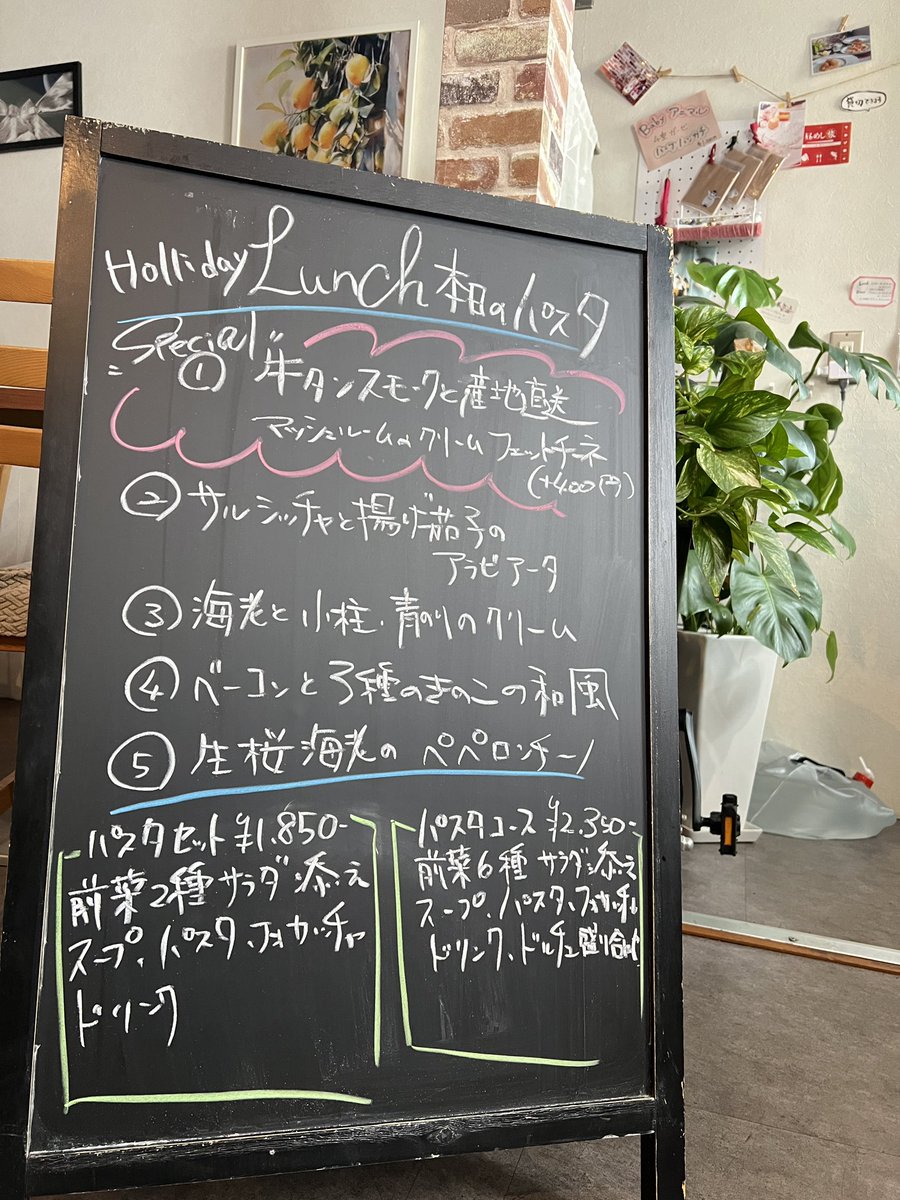 Holliday Lunch 本日のパスタ
"Special"
① 牛タンスモークと産地直送
マッシュルームのクリームフェットチーネ
(+400円)
② サルシッチャと揚げ茄子の
アラビアータ
③ 海老と小柱、青のりのクリーム
④ ベーコンと3種のきのこの和風
⑤ 生桜海老のペペロンチーノ
パスタセット ¥1.850-
前菜2種サラダ添え
スープ、パスタ、フォカッチャ
ドリンク
パスタコース ¥2.350-
前菜6種サラダ添え
スープ、パスタ、フォカッチャ
ドリンク、ドルチェ盛り合わせ
Baby アニマル
貸切できます
昼めし旅